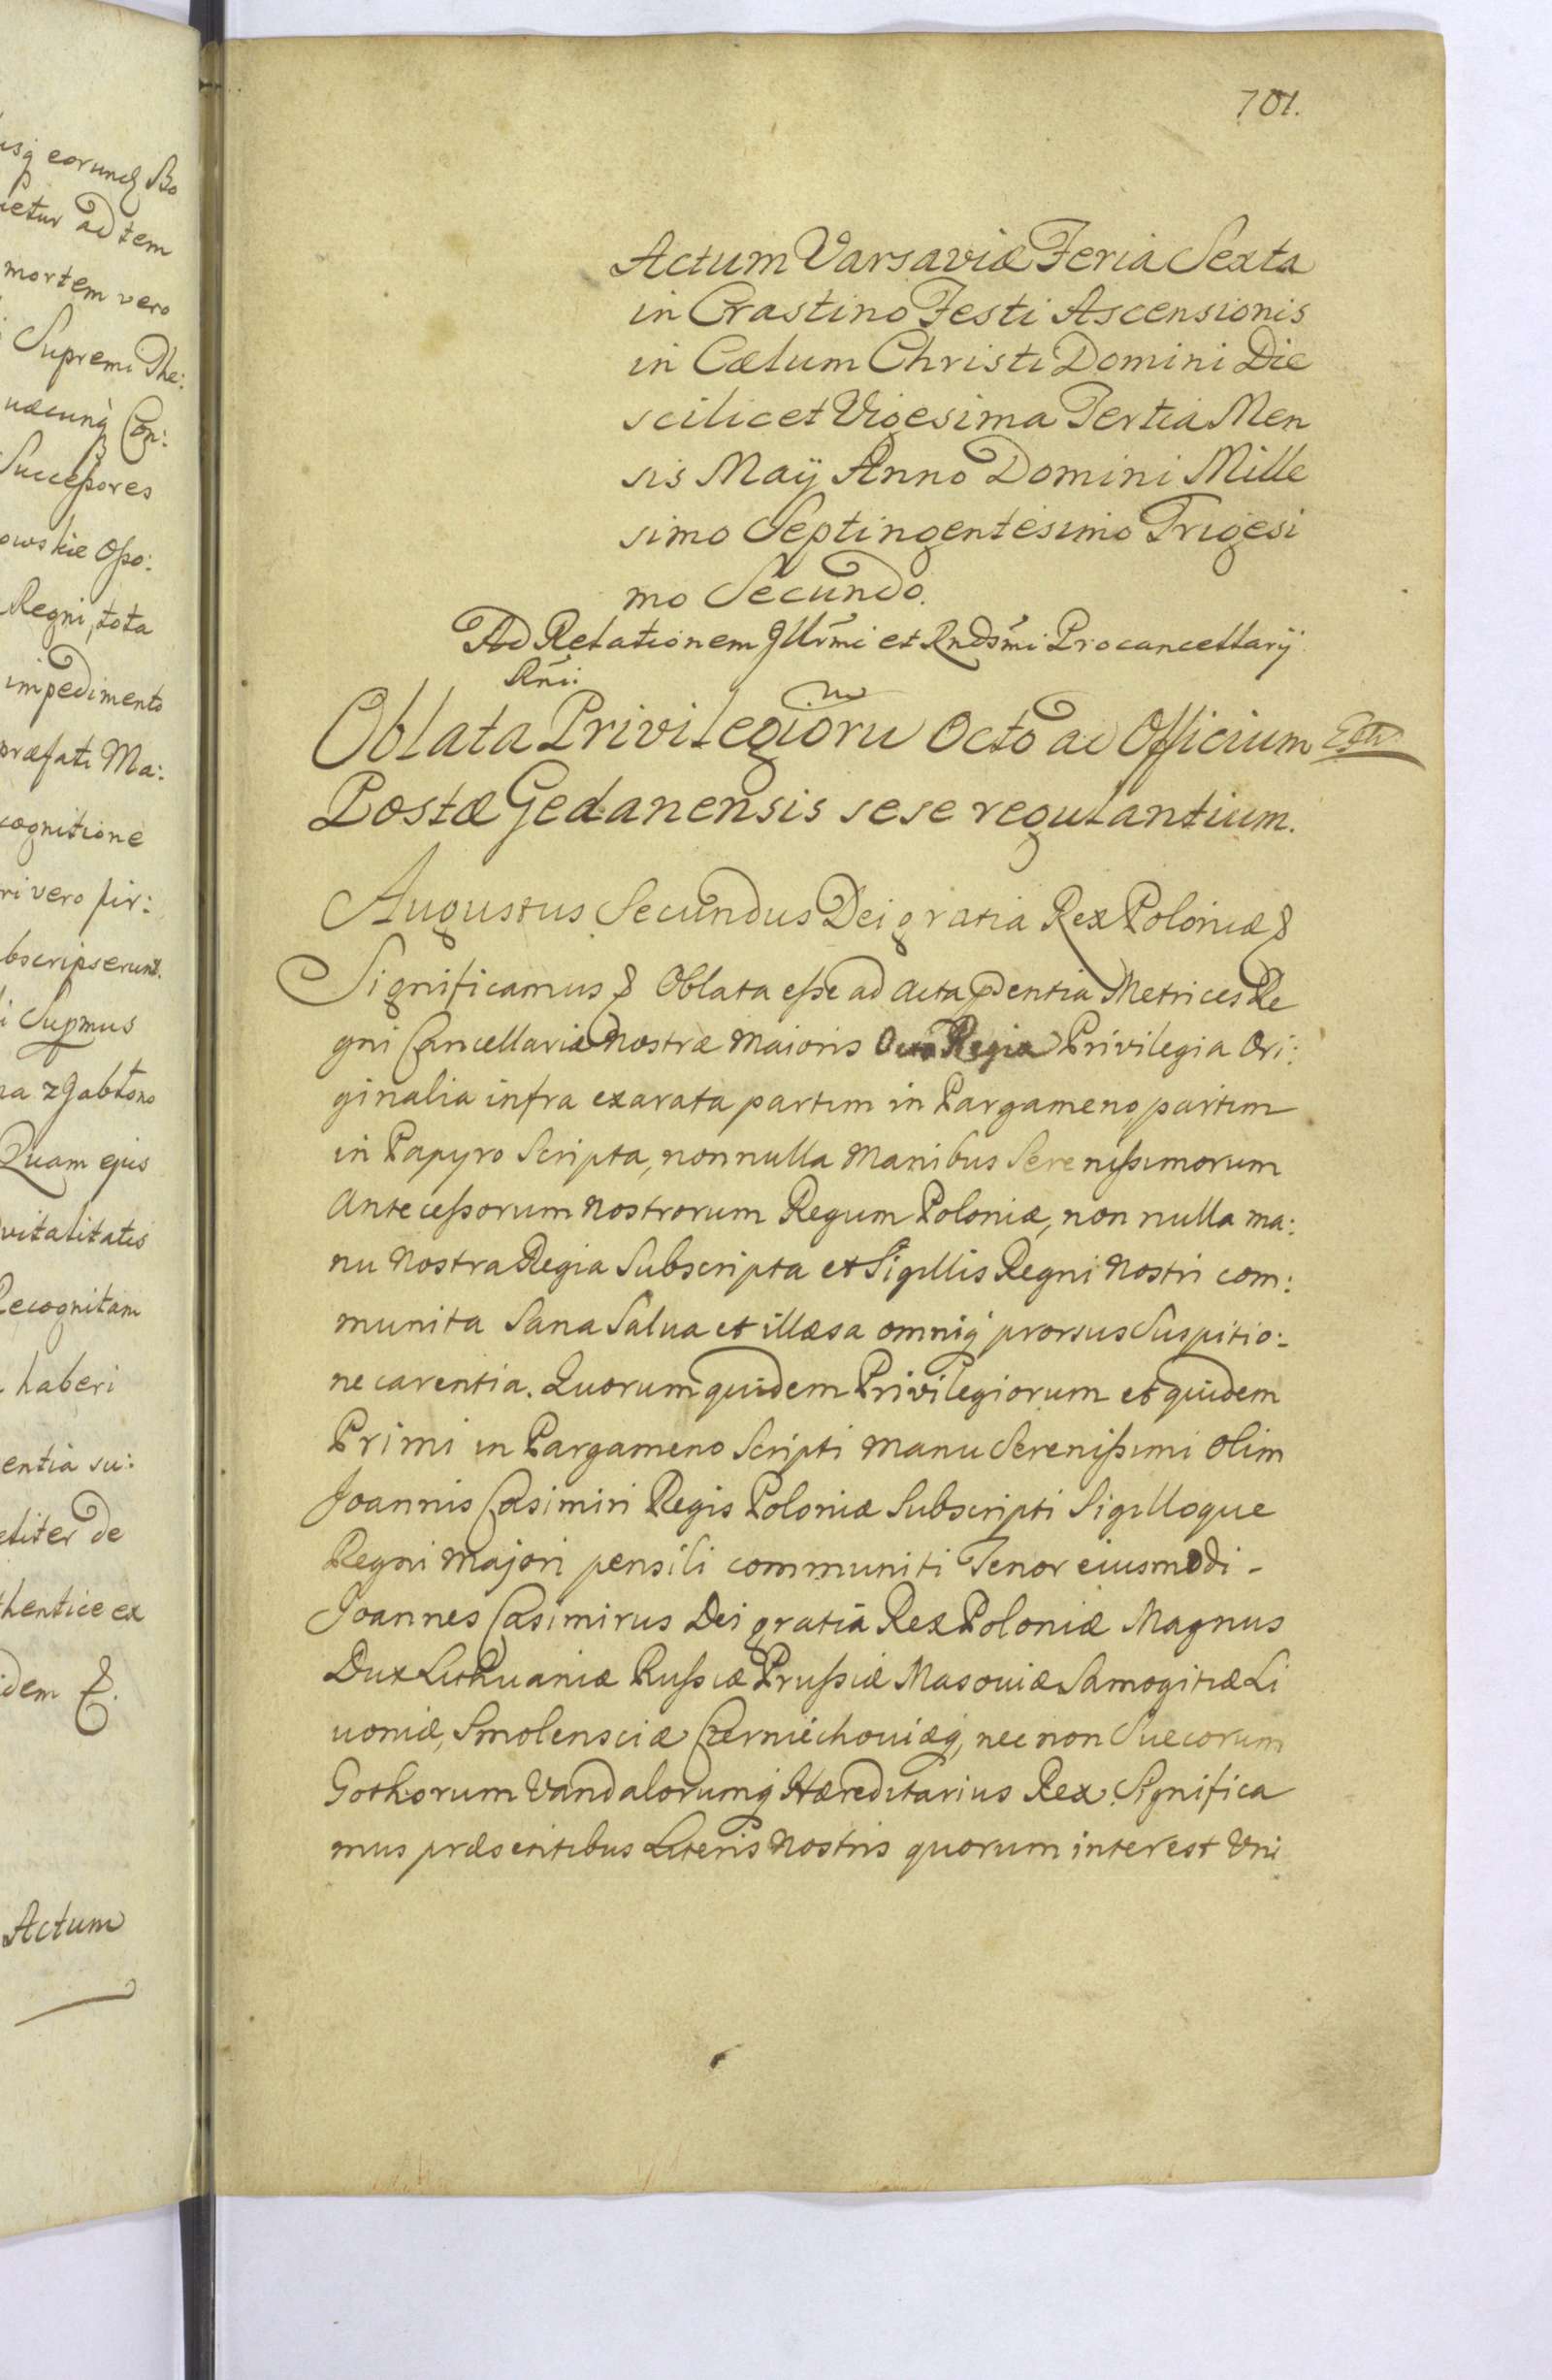 isq eorundq Bo
ietur ad tem
mortem vero
Supremi The:
uæcunq Con:
Successores
owskie Osso:
Regni, tota
impedimento
præfati Ma:
cognitione
ri vero fir:
bscripserunt.
i Supmus
na z Gabłono
Quam ejus
vitalitatis
Recognitam
haberi
entia su:
eliter de
thentice ex
idem &.
Actum
701.
Actum Varsaviæ Feria Sexta
in Crastino Festi Ascensionis
in Cælum Christi Domini Die
scilicet Vigesima Tertia Men
sis Maÿ Anno Domini Mille
simo Septingentesimo Trigesi
mo Secundo.
Ad Relationem Jllrmi et Rndsmi Procancellarÿ
Rni:
Oblata Privilegioru Octo ad Officium
Postæ Gedanensis sese regulantium.
Augustus Secundus Dei gratia Rex Poloniæ &
Significamus & Oblata esse ad Acta pdentia Metrices Re
gni Cancellariæ Nostræ Maioris Octo Regia Privilegia Ori:
ginalia infra exarata partim in Pargameno partim
in Papyro Scripta, non nulla Manibus Serenissimorum
Antecessorum Nostrorum Regum Poloniæ, non nulla ma:
nu Nostra Regia Subscripta et Sigillis Regni Nostri com:
munita Sana Salua et illæsa omniq prorsus Suspitio:
ne carentia. Quorum quidem Privilegiorum et quidem
Primi in Pargameno Scripti Manu Serenissimi olim
Joannis Casimiri Regis Poloniæ Subscripti Sigilloque
Regni Majori pensili communiti Tenor eiusmodi -
Joannes Casimirus Dei gratia Rex Poloniæ Magnus
Dux Lithuaniæ Russiæ Prussiæ Masouiæ Samogitiæ Li
uoniæ, Smolensciæ Czerniechouiæq, nec non Suecorum
Gothorum Vandalorumq Hæreditarius Rex. Significa
mus præsentibus Literis Nostris quorum interest Vni